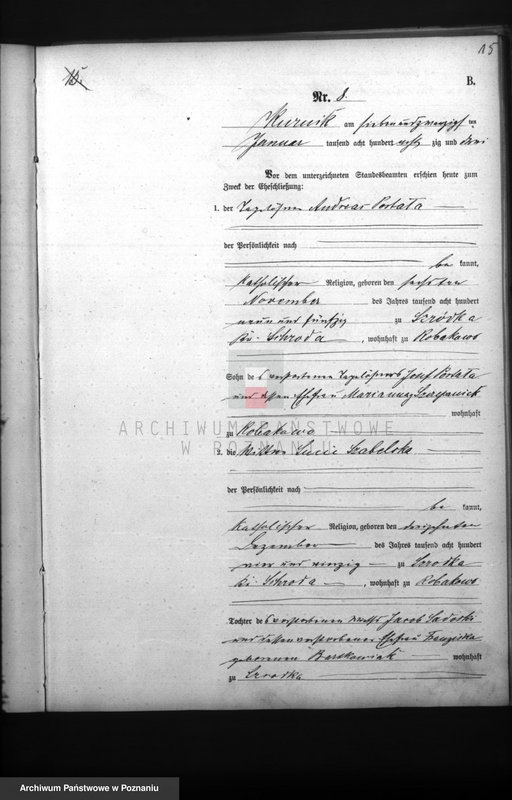 15
15.
B.
Nr. 8.
Kurnik am sieben und zwanzigsten
Januar tausend acht hundert achtzig und drei
Vor dem unterzeichneten Standesbeamten erschien heute zum
Zweck der Eheschließung:
1. der Tagelöhner Andreas
der Persönlichkeit nach
be kannt,
katholischer Religion, geboren den sechsten
November des Jahres tausend acht hundert
neun und fünfzig zu Szrodka
Kr. Schroda, wohnhaft zu Robakowo
Sohn des verstorbenen Tagelöhners Josef
und dessen Ehefrau Marianna
wohnhaft
zu Robakowo
ARCHIWUM PAŃSTWOWE
W POZNANIU
2. die Wittwe Lucie
der Persönlichkeit nach
be kannt,
katholischer Religion, geboren den dreizehnten
Dezember des Jahres tausend acht hundert
vier und vierzig zu Szrodka
Schroda, wohnhaft zu Robakowo
Tochter des verstorbenen Jacob
und dessen verstorbener Ehefrau Franziska
geborenen Bartkowiak wohnhaft
zu Szrodka
Archiwum Państwowe w Poznaniu